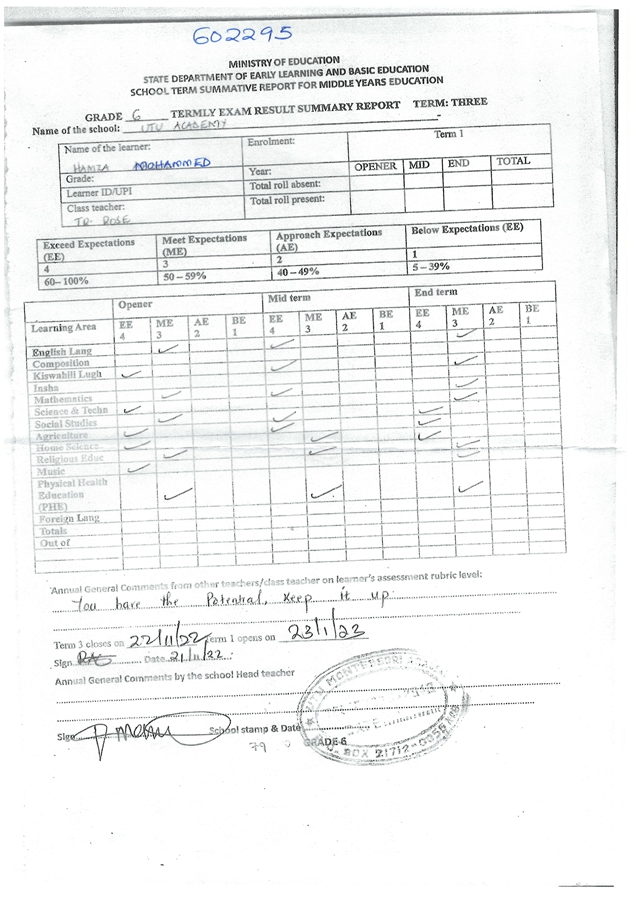 602295
MINISTRY OF EDUCATION
STATE DEPARTMENT OF EARLY LEARNING AND BASIC EDUCATION
SCHOOL TERM SUMMATIVE REPORT FOR MIDDLE YEARS EDUCATION
GRADE 6 TERMLY EXAM RESULT SUMMARY REPORT TERM: THREE
Name of the school: UTU ACADEMY
Name of the learner: Enrolment: Term 1
HAMZA MOHAMMED
Grade: Year: OPENER MID END TOTAL
Learner ID/UPI Total roll absent:
Class teacher: Total roll present:
TR. ROSE
Exceed Expectations (EE) Meet Expectations (ME) Approach Expectations (AE) Below Expectations (EE)
4 3 2 1
60–100% 50–59% 40–49% 5–39%
Opener Mid term End term
Learning Area EE 4 ME 3 AE 2 BE 1 EE 4 ME 3 AE 2 BE 1 EE 4 ME 3 AE 2 BE 1
English Lang ✓ ✓ ✓
Composition ✓ ✓
Kiswahili Lugh ✓
Insha ✓ ✓
Mathematics ✓ ✓
Science & Techn ✓ ✓ ✓
Social Studies ✓ ✓ ✓
Agriculture ✓ ✓ ✓
Home Science ✓ ✓
Religious Educ ✓ ✓ ✓
Music ✓
Physical Health Education (PHE) ✓ ✓ ✓
Foreign Lang
Totals
Out of
Annual General Comments from other teachers/class teacher on learner's assessment rubric level:
You have the Potential, Keep it up
Term 3 closes on 22/11/22 Term 1 opens on 23/1/23
Sign Date 21/11/22
Annual General Comments by the school Head teacher
Sign School stamp & Date
79 GRADE 6
MONTESSORI
BOX 21712-